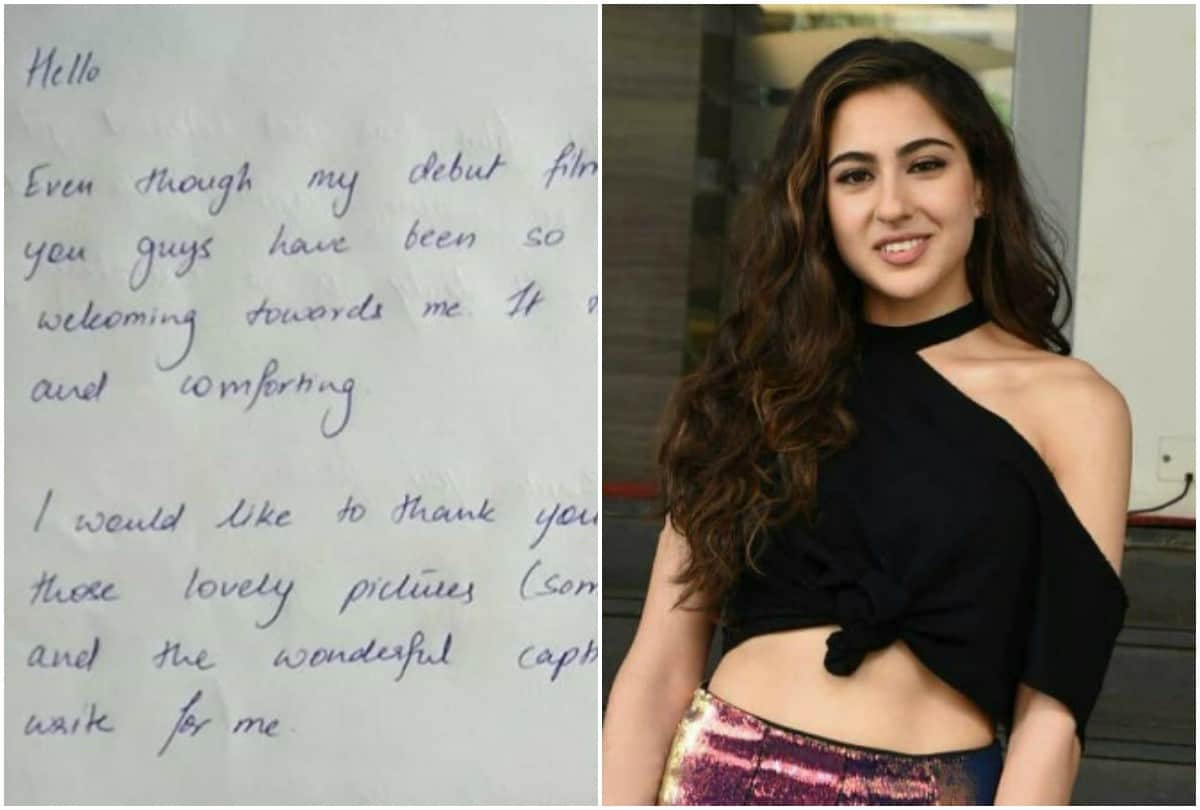 Hello
Even though my debut film
you guys have been so
welcoming towards me. It
and comforting.
I would like to thank you
those lovely pictures (som
and the wonderful capt
write for me.